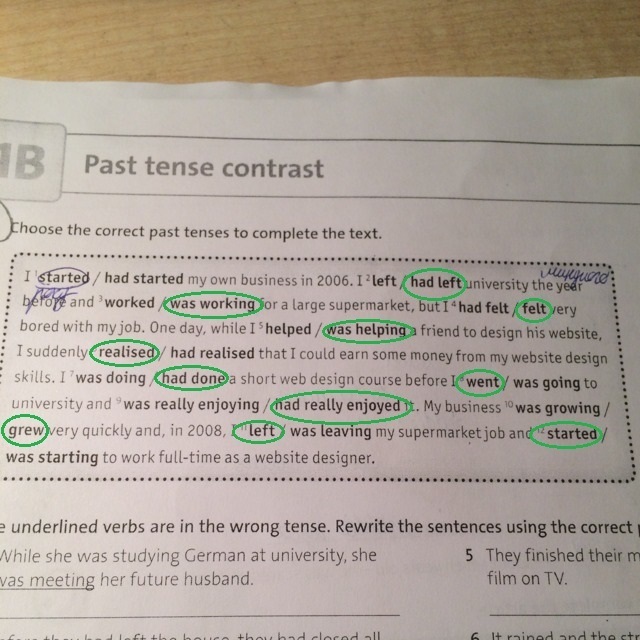 1B Past tense contrast
Choose the correct past tenses to complete the text.
I 1 started / had started my own business in 2006. I 2 left / had left university the year
before and 3 worked / was working for a large supermarket, but I 4 had felt / felt very
bored with my job. One day, while I 5 helped / was helping a friend to design his website,
I suddenly realised / had realised that I could earn some money from my website design
skills. I 7 was doing / had done a short web design course before I went / was going to
university and 9 was really enjoying / had really enjoyed it. My business 10 was growing /
grew very quickly and, in 2008, I 11 left / was leaving my supermarket job and 12 started /
was starting to work full-time as a website designer.
e underlined verbs are in the wrong tense. Rewrite the sentences using the correct
While she was studying German at university, she
was meeting her future husband.
5 They finished their m
film on TV.
efore they had left the house, they had closed all
6 It rained and the str